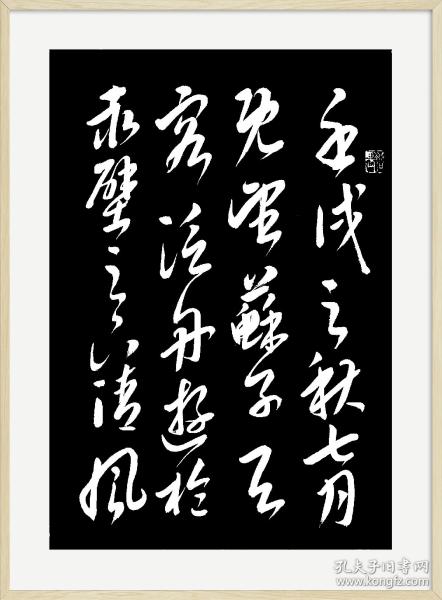 壬戌之秋七月
既望蘇子与
客泛舟遊於
赤壁之下清風
孔夫子旧书网
www.kongfz.com